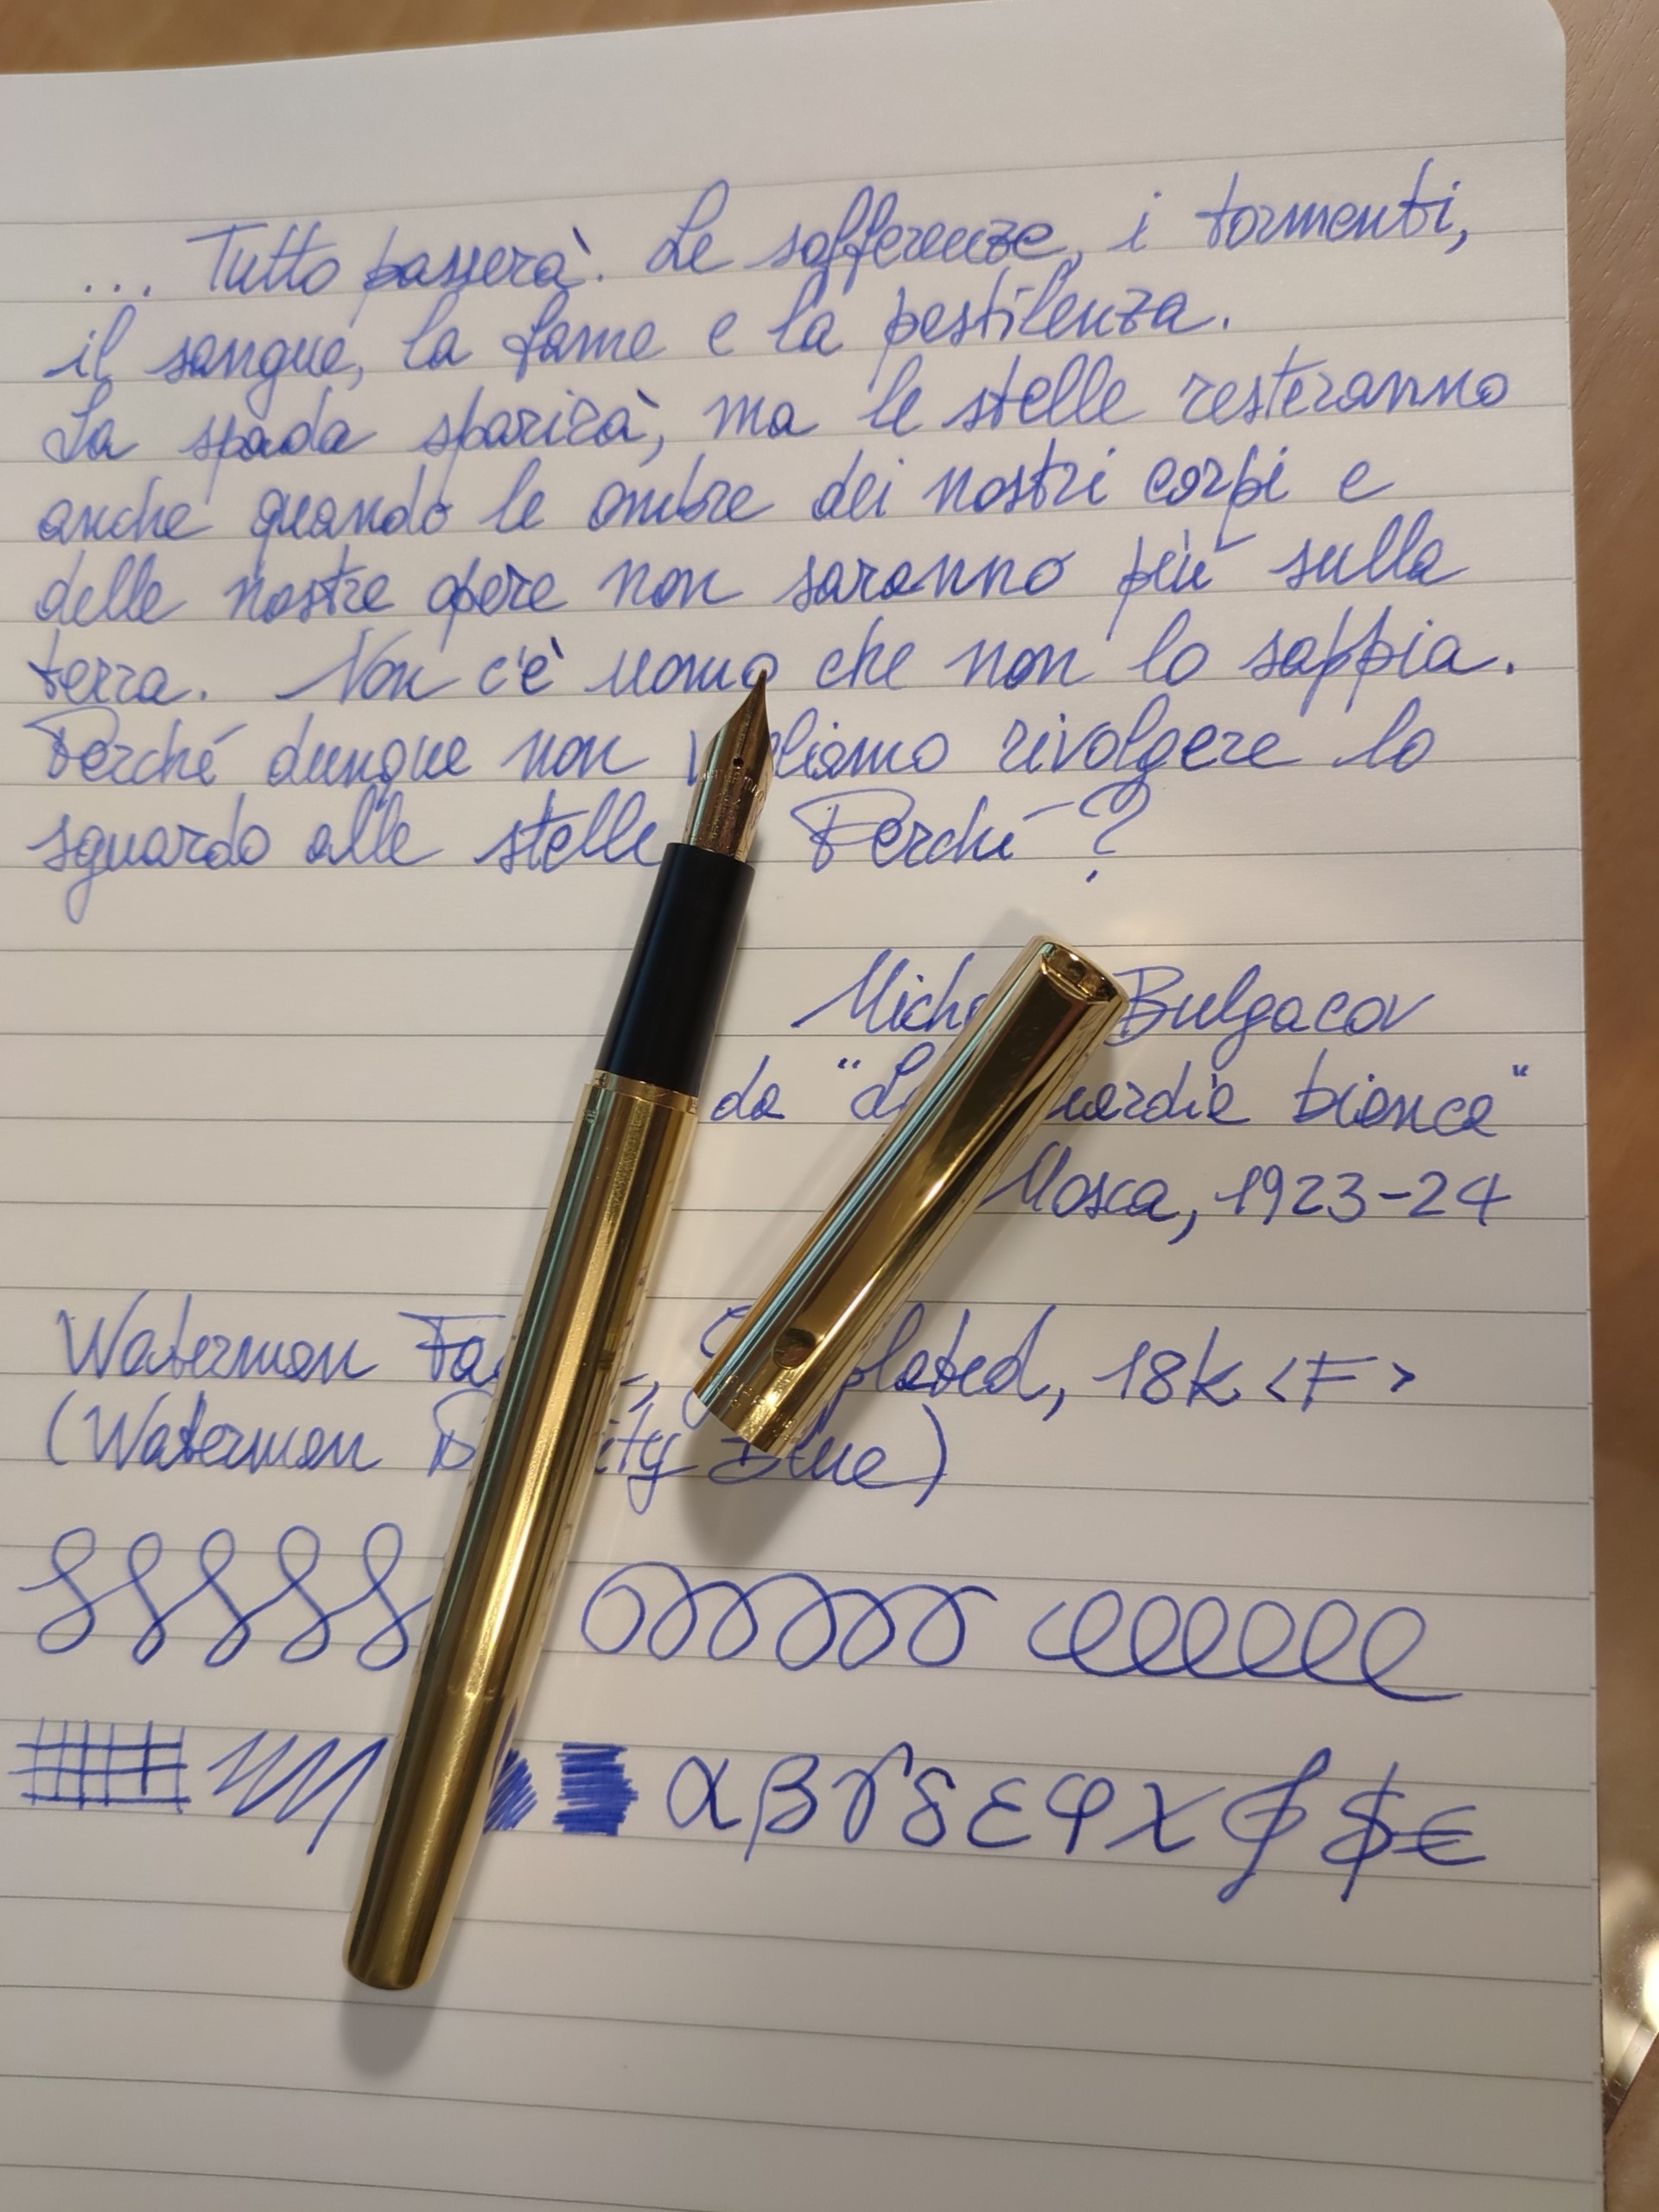 ... Tutto passerà. Le sofferenze, i tormenti,
il sangue, la fame e la pestilenza.
La spada sparirà, ma le stelle resteranno
anche quando le ombre dei nostri corpi e
delle nostre opere non saranno più sulla
terra. Non c'è uomo che non lo sappia.
Perché dunque non rivolgere lo
sguardo alle stelle Perché?
Bulgacov
da "La bianca"
Mosca, 1923-24
Waterman 18k <F>
(Waterman Blue)
α β γ δ ε φ χ $ €